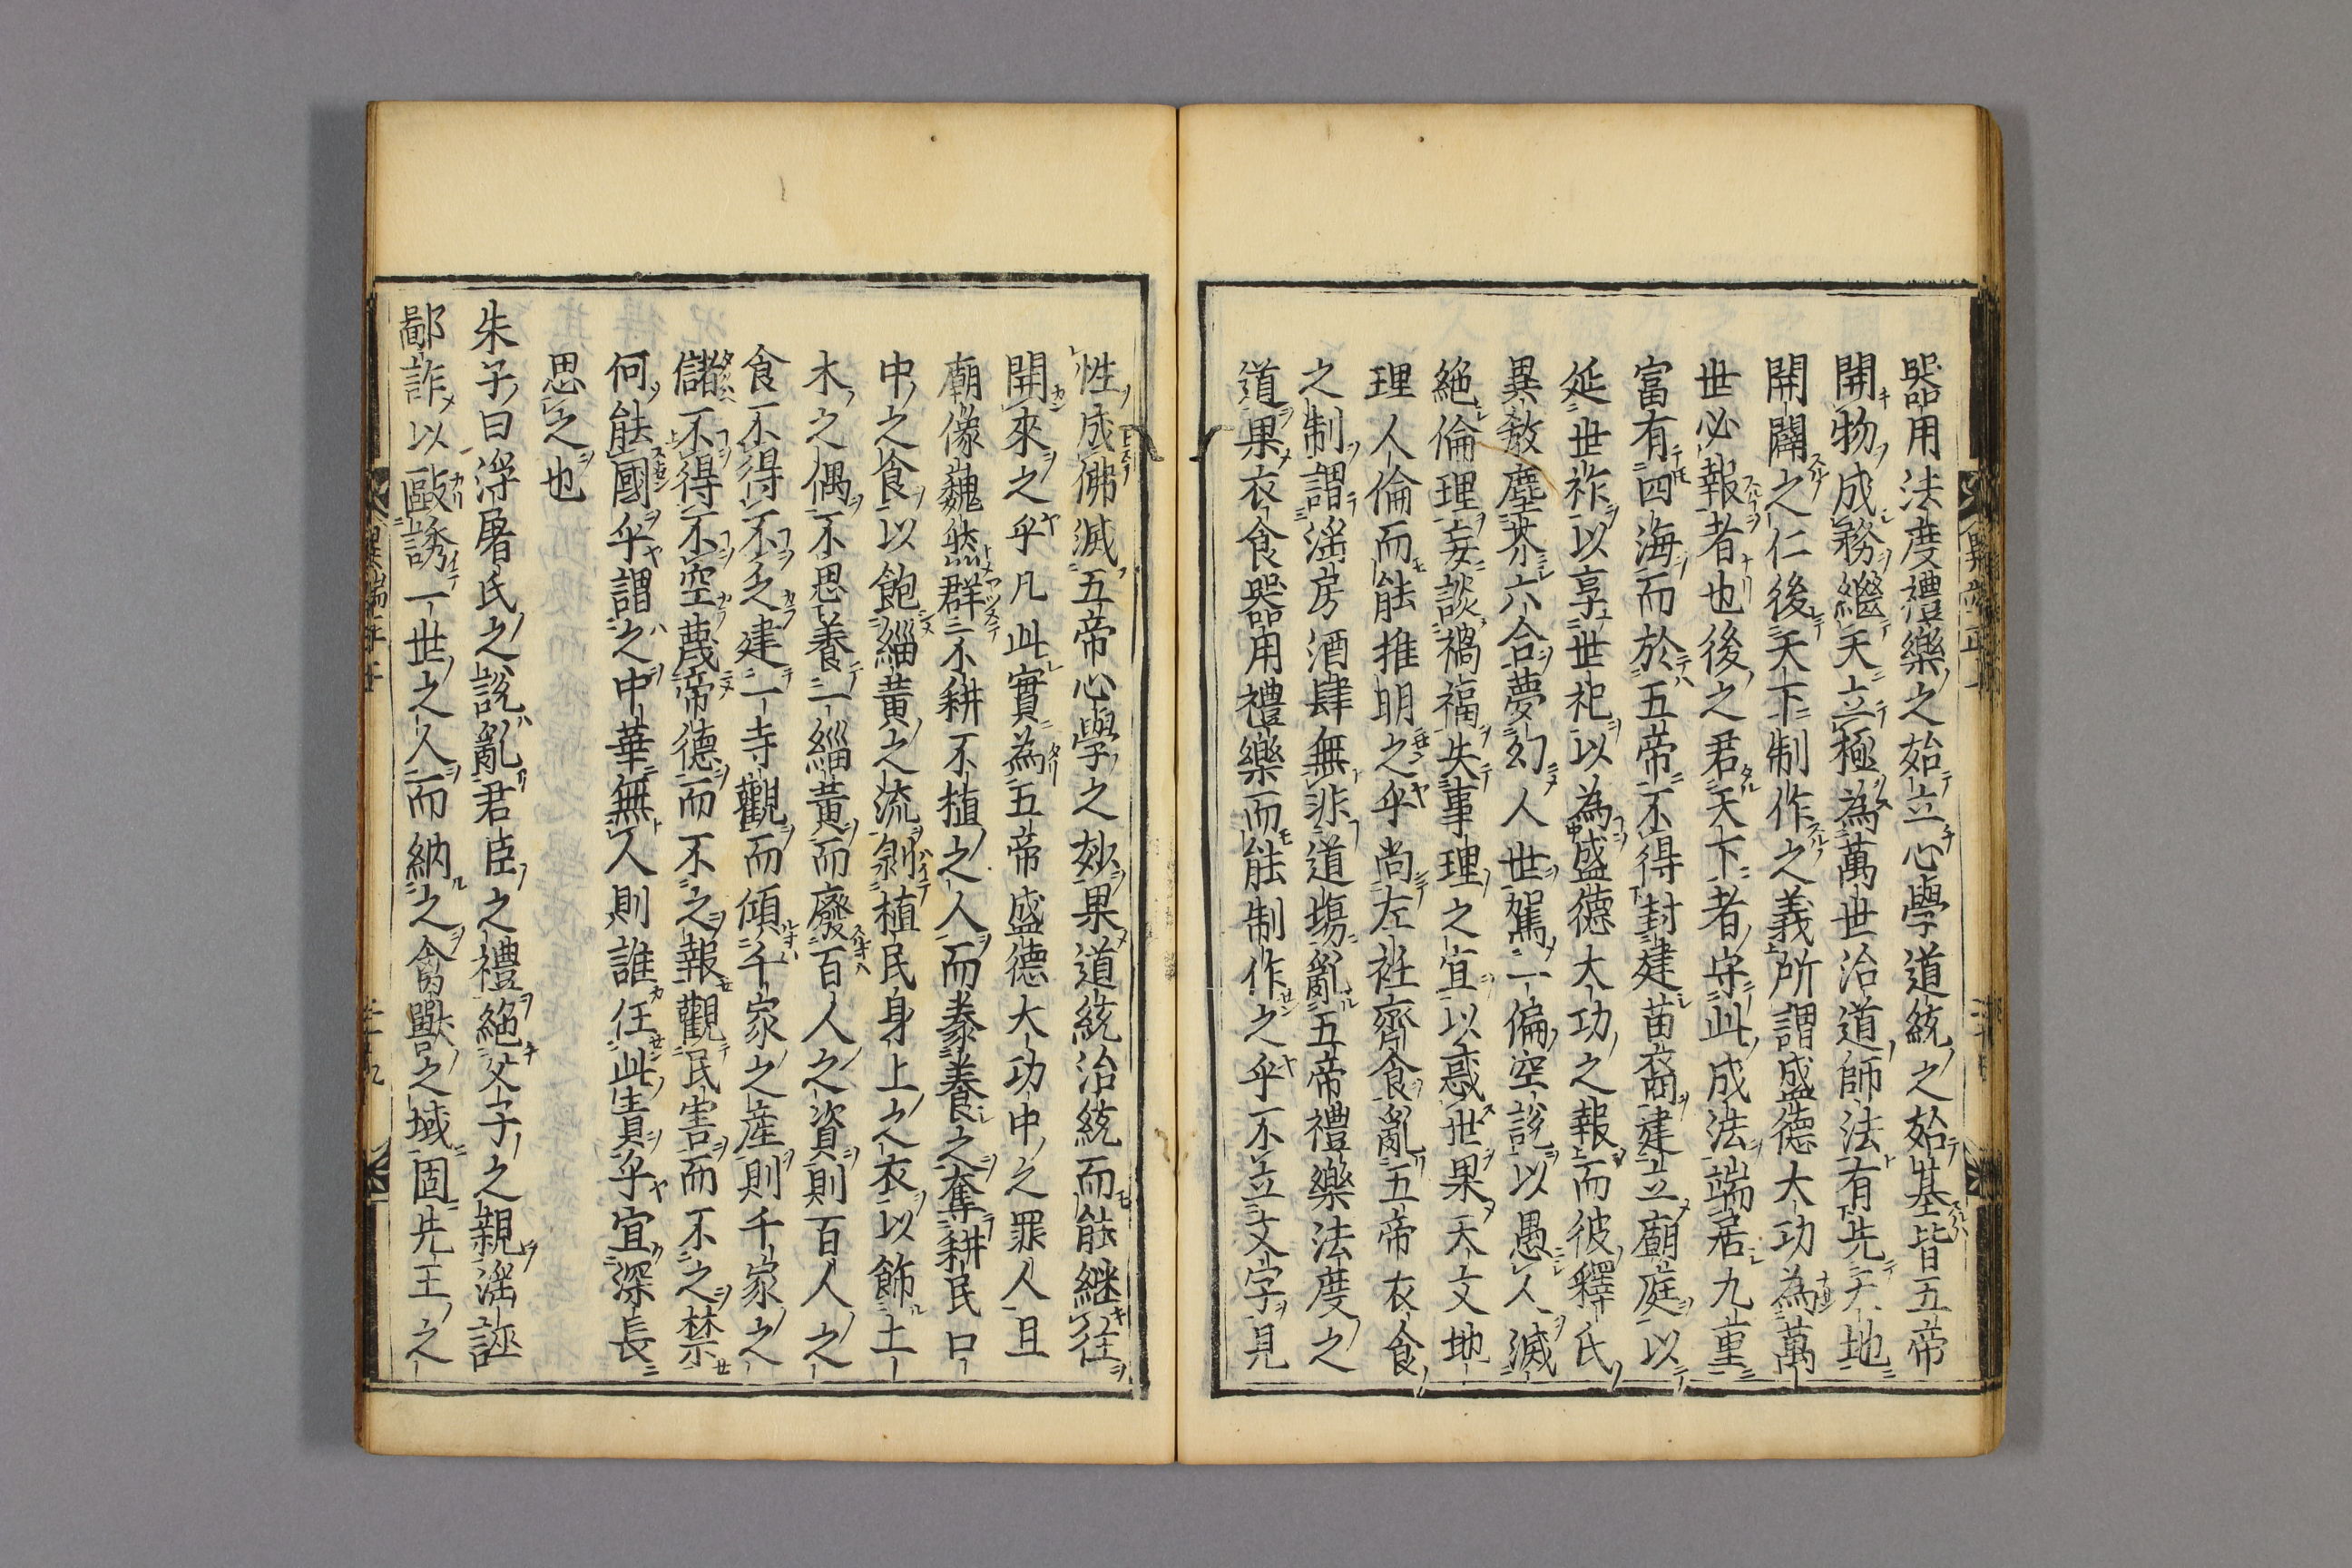 器用法度禮樂之始立心學道統之始基皆五帝
開物成務繼天立極為萬世治道師法有先天地
開闢之仁後天下制作之義所謂盛德大功為萬
世必報者也後之君天下者守此成法端居九重
富有四海而於五帝不得封建苗裔建立廟庭以
延世祚以享世祀以為盛德大功之報而彼釋氏
異教塵芥六合夢幻人世駕一偏空說以愚人滅
絕倫理妄談禍福失事理之宜以惑世果天文地
理人倫而能推明之乎尚左衽齊食亂五帝衣食
之制謂淫房酒肆無非道場亂五帝禮樂法度之
道果衣食器用禮樂而能制作之乎不立文字見
性成佛滅五帝心學之妙果道統治統而能継往
開來之乎凡此實為五帝盛德大功中之罪人且
廟像巍然群不耕不植之人而豢養之奪耕民口
中之食以飽緇黃之流剝植民身上之衣以飾土
木之偶不思養一緇黃而廢百人之資則百人之
食不得不乏建一寺觀而傾千家之産則千家之
儲不得不空蔑帝德而不之報觀民害而不之禁
何能國乎謂之中華無人則誰任此責乎宜深長
思之也
朱子曰浮屠氏之說亂君臣之禮絕父子之親淫誣
鄙詐以敺誘一世之人而納之禽獸之域固先王之